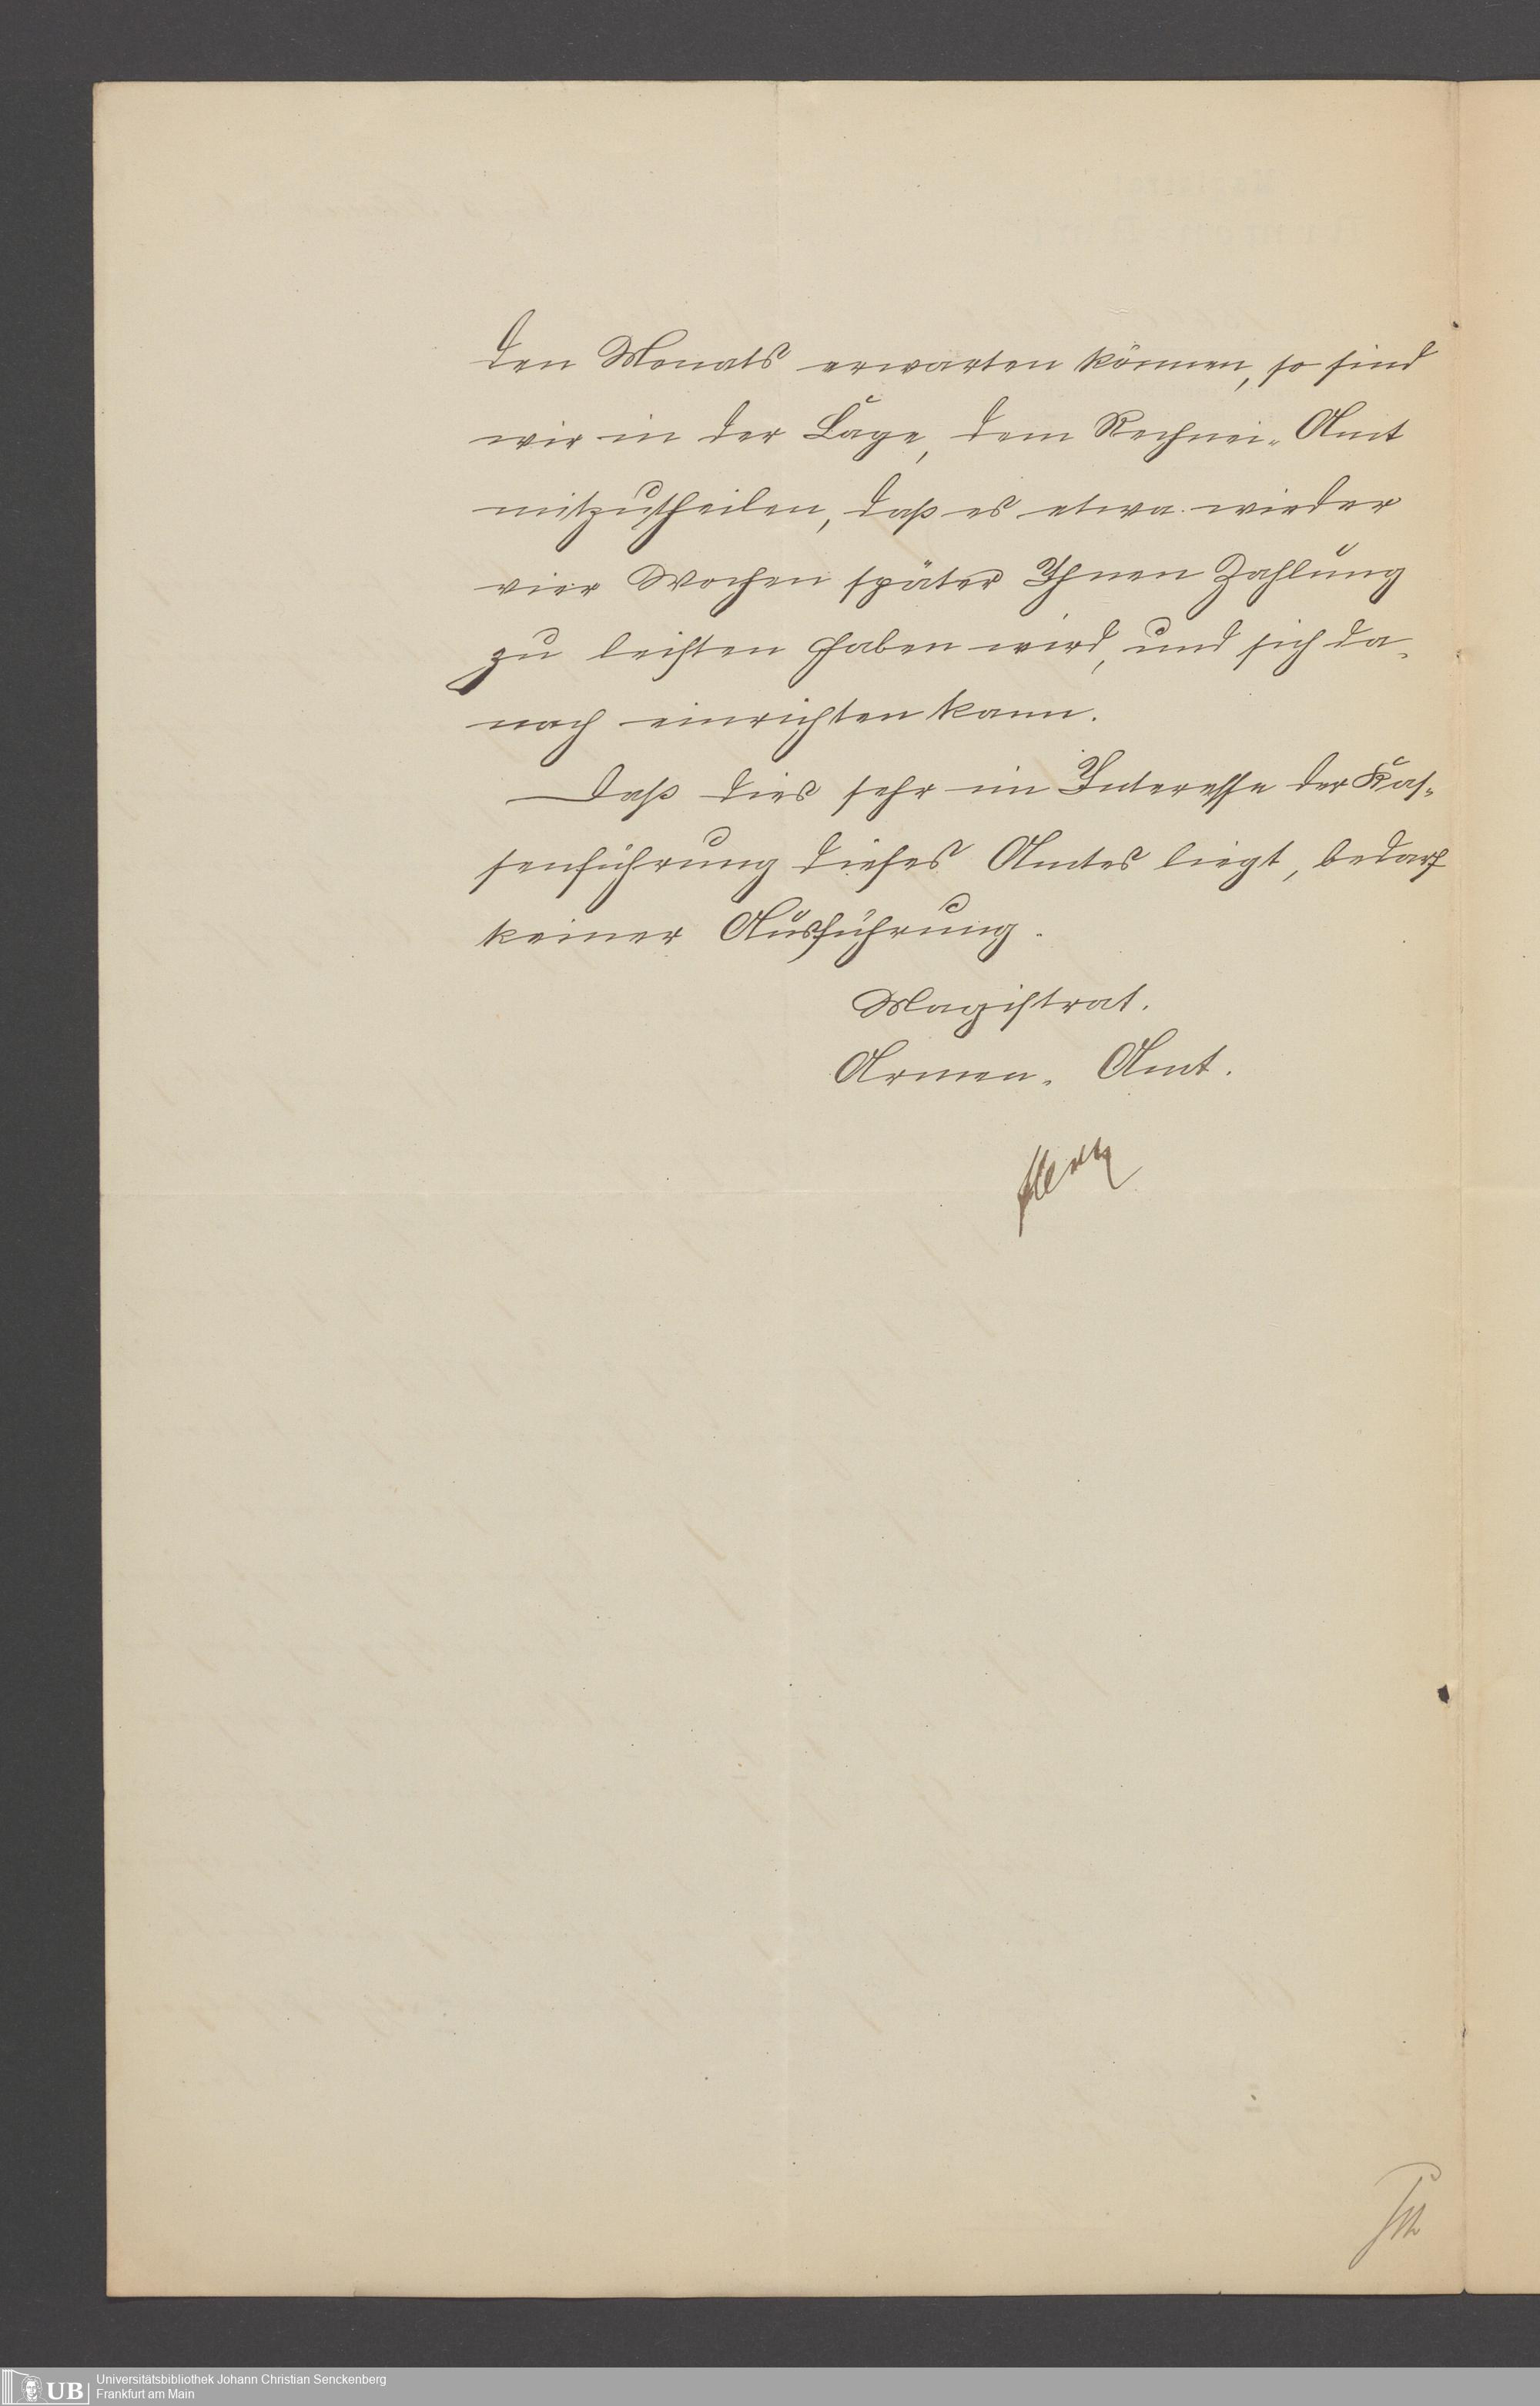 den Monats erwarten können, so sind
wir in der Lage, dem Rechnei-Amt
mitzutheilen, daß es etwa wieder
vier Wochen später Ihnen Zahlung
zu leisten haben wird, und sich da-
nach einrichten kann.
Daß dies sehr im Interesse der Kas-
senführung dieses Amtes liegt, bedarf
keiner Ausführung.
Magistrat.
Armen-Amt.
UB
Universitätsbibliothek Johann Christian Senckenberg
Frankfurt am Main